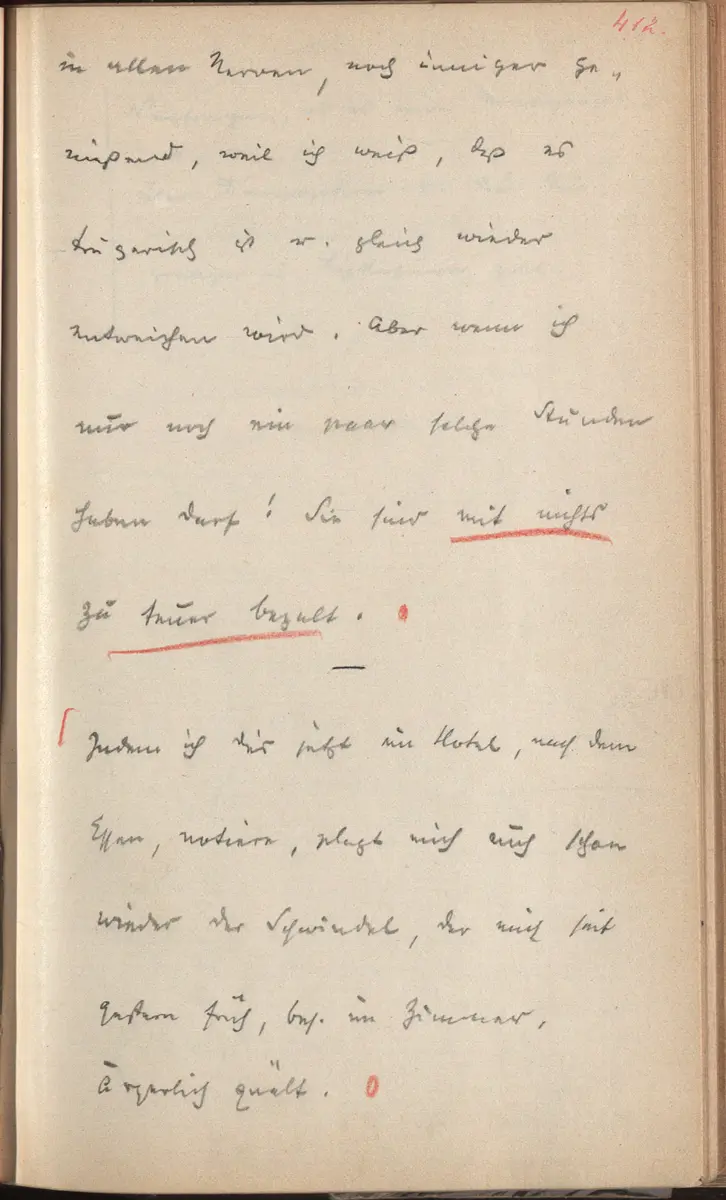 412.
in allen Nerven, noch inniger ge„
nießend, weil ich weiß, daß es
trügerisch ist u. gleich wieder
entweichen wird. Aber wenn ich
nur noch ein paar solche Stunden
haben darf! Sie sind mit nichts
zu teuer bezalt.
—
Indem ich dies jetzt im Hotel, nach dem
Essen, notiere, plagt mich auch schon
wieder der Schwindel, der mich seit
gestern früh, bes. im Zimmer,
ärgerlich quält.